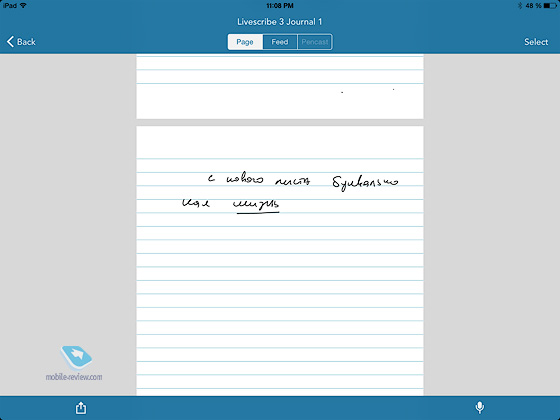 iPad 11:08 PM 48 %
Livescribe 3 Journal 1
Back Page Feed Pencast Select
с нового листа буквально
как жизнь
mobile-review.com